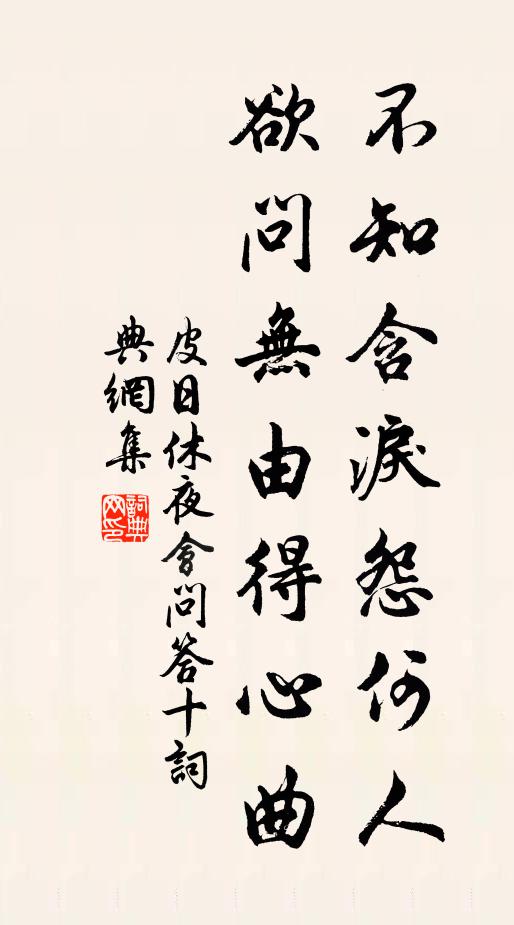 不知含淚怨何人
欲問無由得心曲
皮日休夜會問答十詞
典網集
詞典網印